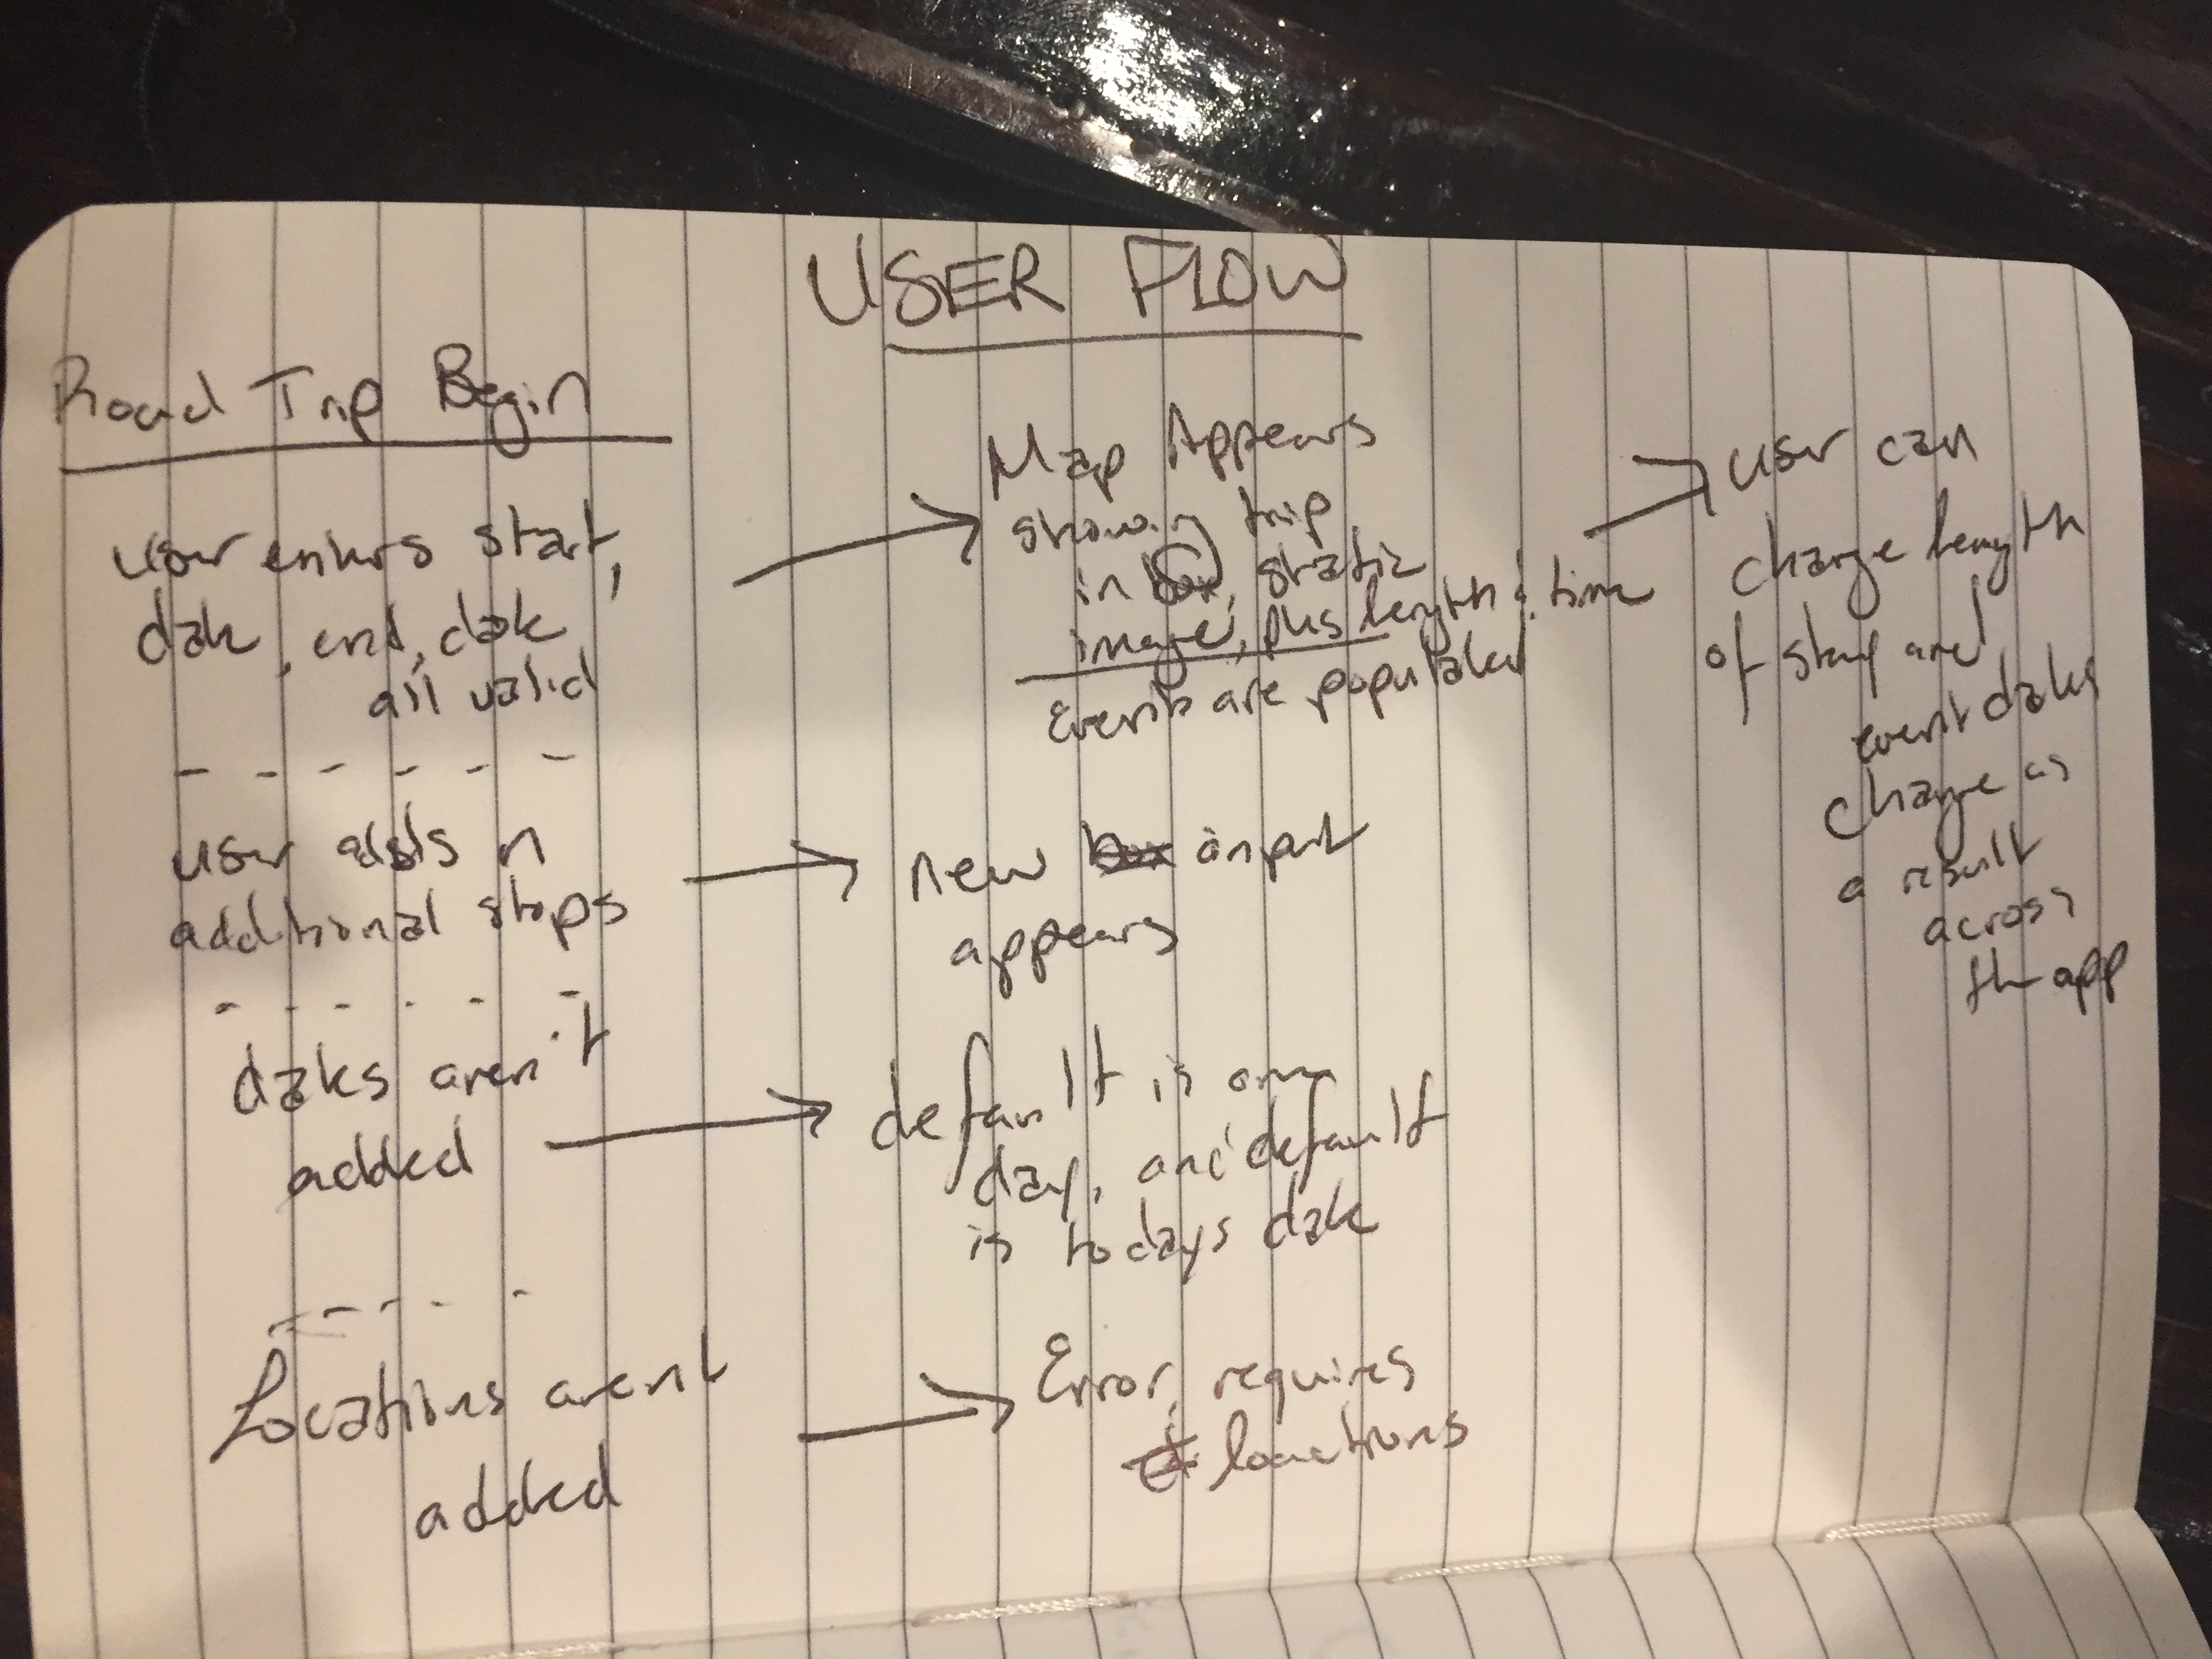 USER FLOW
Road Trip Begin
user enters start,
date, end, date
all valid
Map Appears
showing trip
in static
image, plus length & time
Events are populated
user can
change length
of stay and
event dates
change as
a result
across
the app
user adds n
additional stops
new input
appears
dates aren't
added
default is one
day, and default
is todays date
Locations arent
added
Error, requires
locations